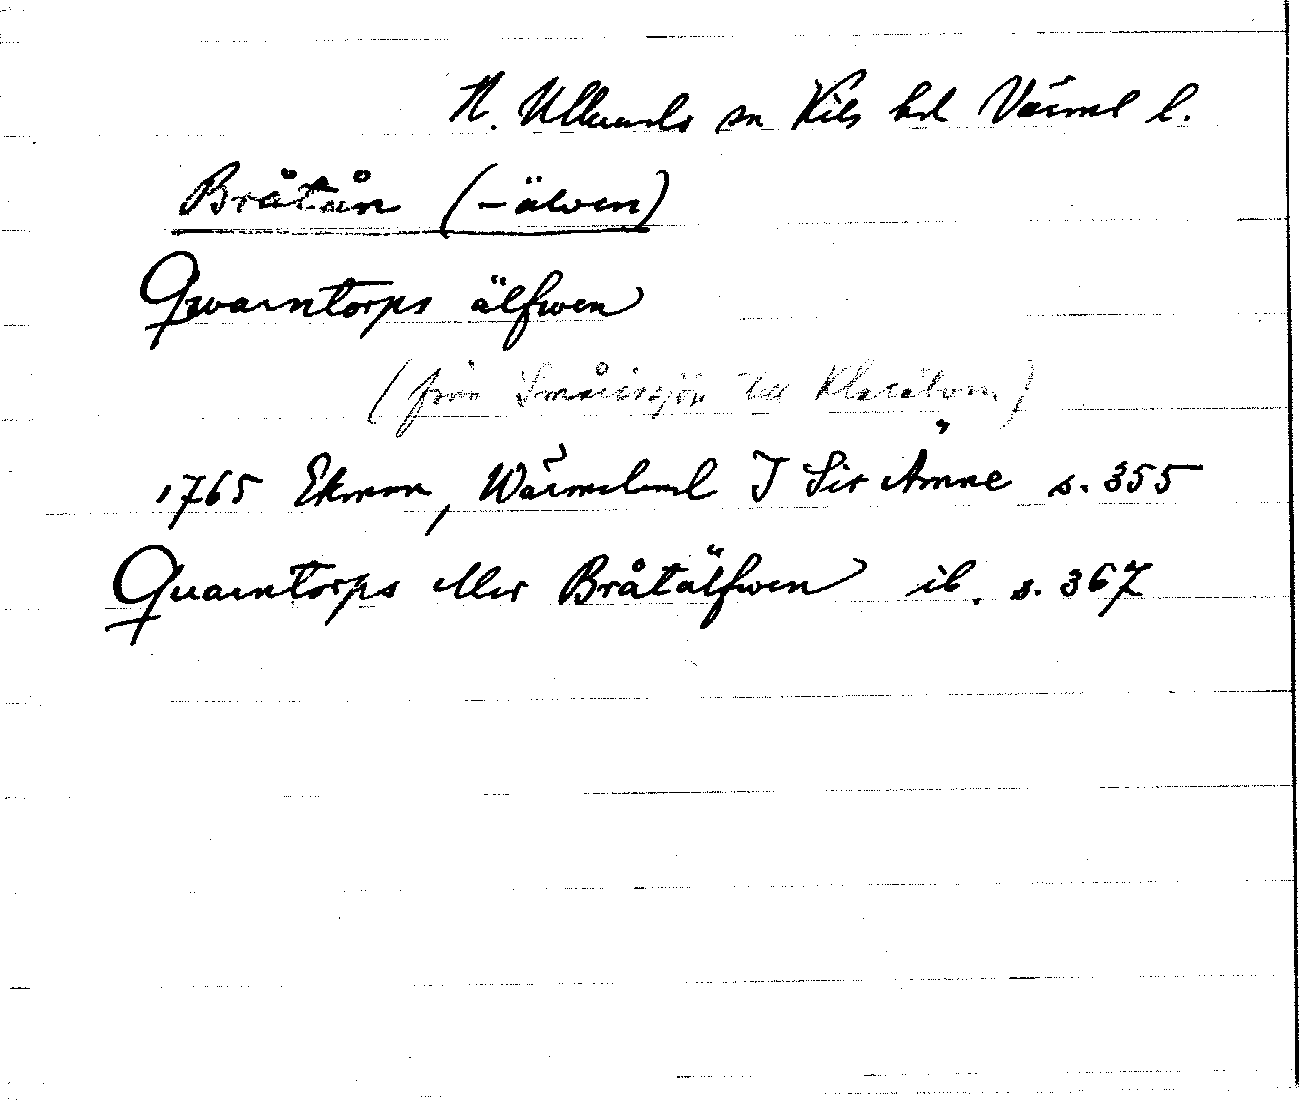 N. Ulleruds sn Kils hd Värml l.
Bråtån (-älven)
Qwarntorps älfwen
(från Smårissjön till Klarälven)
1765 Ekman, Wärmeland I Sir Ämne s. 355
Quarntorps eller Bråtälfwen ib. s. 367